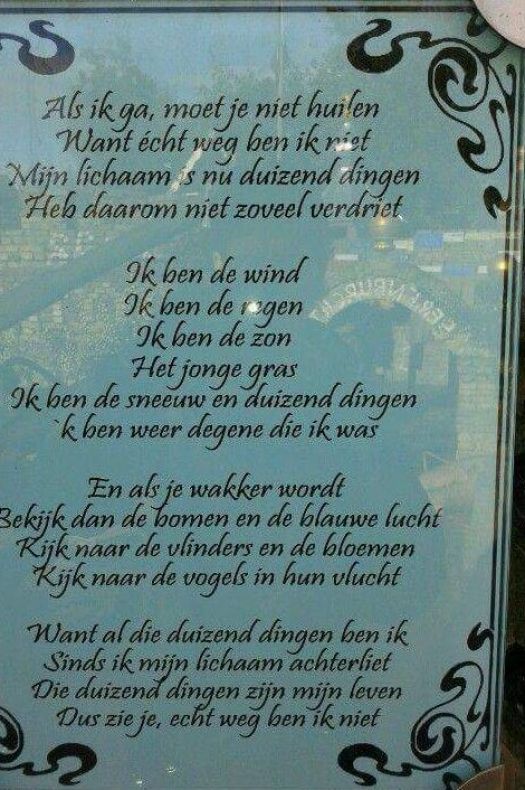 Als ik ga, moet je niet huilen
Want écht weg ben ik niet
Mijn lichaam is nu duizend dingen
Heb daarom niet zoveel verdriet
Ik ben de wind
Ik ben de regen
Ik ben de zon
Het jonge gras
Ik ben de sneeuw en duizend dingen
`k ben weer degene die ik was
En als je wakker wordt
Bekijk dan de bomen en de blauwe lucht
Kijk naar de vlinders en de bloemen
Kijk naar de vogels in hun vlucht
Want al die duizend dingen ben ik
Sinds ik mijn lichaam achterliet
Die duizend dingen zijn mijn leven
Dus zie je, echt weg ben ik niet